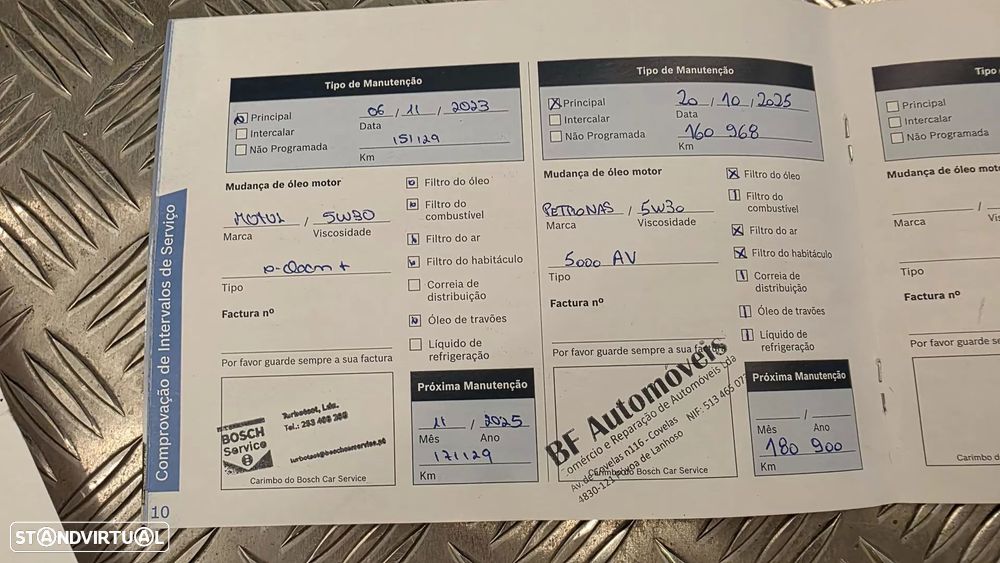 Comprovação de Intervalos de Serviço
10
Tipo de Manutenção
Principal
Intercalar
Não Programada
06 / 11 / 2023
Data
151129
Km
Mudança de óleo motor
MOTUL / 5W30
Marca Viscosidade
Tipo
Factura nº
Por favor guarde sempre a sua factura
Filtro do óleo
Filtro do
combustível
Filtro do ar
Filtro do habitáculo
Correia de
distribuição
Óleo de travões
Líquido de
refrigeração
BOSCH
Service
Turbotest, Lda.
Carimbo do Bosch Car Service
Próxima Manutenção
11 / 2025
Mês Ano
171129
Km
Tipo de Manutenção
Principal
Intercalar
Não Programada
20 / 10 / 2025
Data
160 968
Km
Mudança de óleo motor
PETRONAS / 5W30
Marca Viscosidade
5000 AV
Tipo
Factura nº
Por favor guarde sempre a sua factura
Filtro do óleo
Filtro do
combustível
Filtro do ar
Filtro do habitáculo
Correia de
distribuição
Óleo de travões
Líquido de
refrigeração
BF Automóveis
omércio e Reparação de Automóveis Lda
Av. de Covelas n116 - Covelas NIF: 513 465 07
4830-121 Póvoa de Lanhoso
Carimbo do Bosch Car Service
Próxima Manutenção
/
Mês Ano
180 900
Km
Tipo
Principal
Intercalar
Não Programada
Mudança de óleo mot
Marca
Tipo
Factura nº
Por favor guarde se
Carimbo do
STANDVIRTUAL